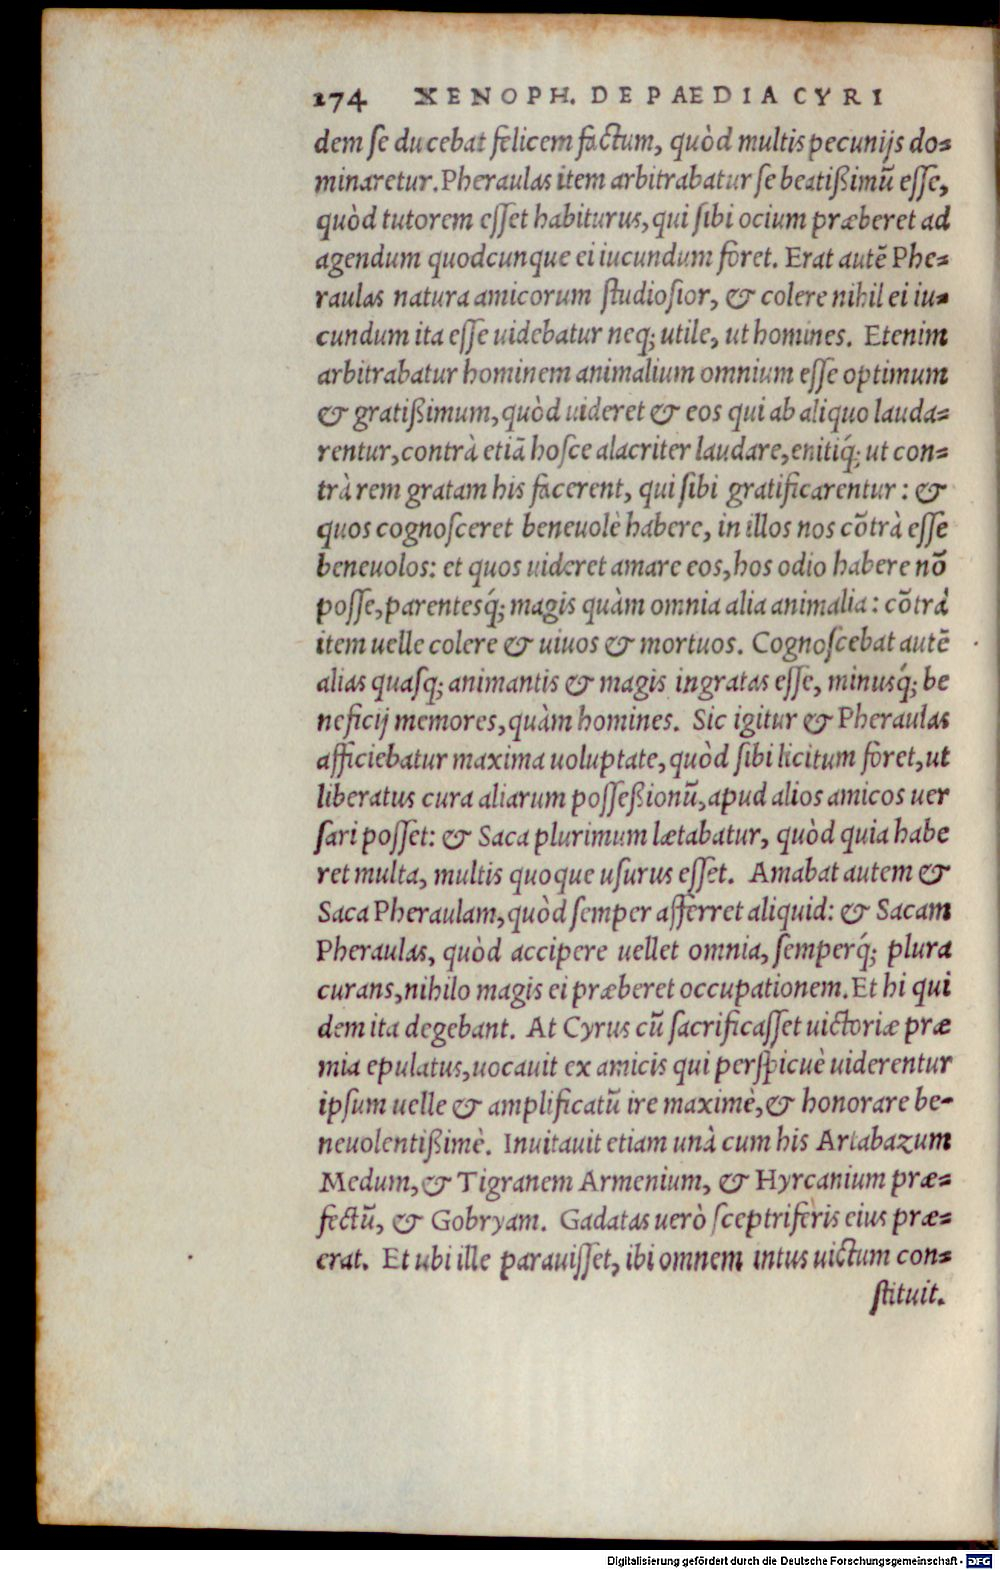 274 XENOPH. DE PAEDIA CYRI
dem se ducebat felicem factum, quòd multis pecunijs do=
minaretur. Pheraulas item arbitrabatur se beatißimũ esse,
quòd tutorem esset habiturus, qui sibi ocium præberet ad
agendum quodcunque ei iucundum foret. Erat autẽ Phe=
raulas natura amicorum studiosior, & colere nihil ei iu=
cundum ita esse uidebatur neq; utile, ut homines. Etenim
arbitrabatur hominem animalium omnium esse optimum
& gratißimum, quòd uideret & eos qui ab aliquo lauda=
rentur, contrà etiã hosce alacriter laudare, enitiq́; ut con=
trà rem gratam his facerent, qui sibi gratificarentur: &
quos cognosceret beneuolè habere, in illos nos cõtrà esse
beneuolos: et quos uideret amare eos, hos odio habere nõ
posse, parentesq́; magis quàm omnia alia animalia: cõtrà
item uelle colere & uiuos & mortuos. Cognoscebat autẽ
alias quasq; animantis & magis ingratas esse, minusq́; be
neficij memores, quàm homines. Sic igitur & Pheraulas
afficiebatur maxima uoluptate, quòd sibi licitum foret, ut
liberatus cura aliarum posseßionũ, apud alios amicos uer
sari posset: & Saca plurimum lætabatur, quòd quia habe
ret multa, multis quoque usurus esset. Amabat autem &
Saca Pheraulam, quòd semper afferret aliquid: & Sacam
Pheraulas, quòd accipere uellet omnia, semperq́; plura
curans, nihilo magis ei præberet occupationem. Et hi qui
dem ita degebant. At Cyrus cũ sacrificasset uictoriæ præ
mia epulatus, uocauit ex amicis qui perspicuè uiderentur
ipsum uelle & amplificatũ ire maximè, & honorare be-
neuolentißimè. Inuitauit etiam unà cum his Artabazum
Medum, & Tigranem Armenium, & Hyrcanium præ=
fectũ, & Gobryam. Gadatas uerò sceptriferis eius præ=
erat. Et ubi ille parauisset, ibi omnem intus uictum con=
stituit.
Digitalisierung gefördert durch die Deutsche Forschungsgemeinschaft - DFG